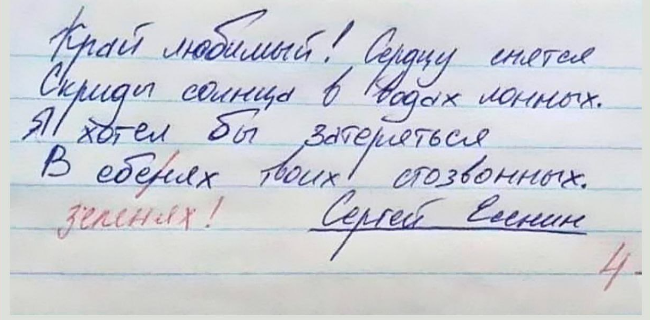 Край любимый! Сердцу снятся
Скирды солнца в водах лонных.
Я хотел бы затеряться
В ебенях твоих стозвонных.
зеленях! Сергей Есенин
4-